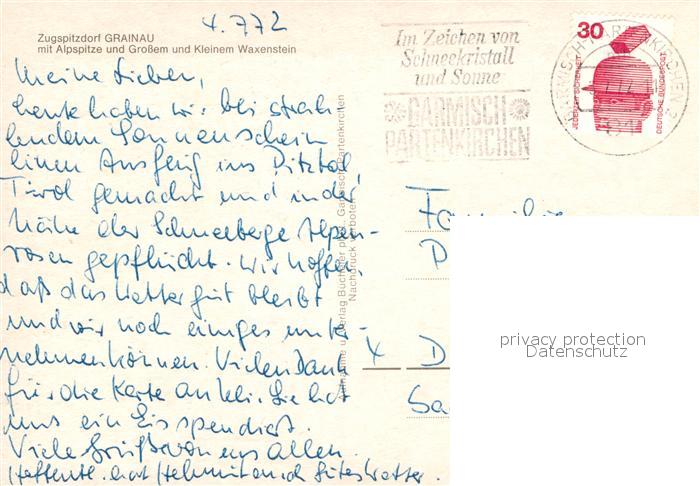 4.772
Zugspitzdorf GRAINAU
mit Alpspitze und Großem und Kleinem Waxenstein
Im Zeichen von
Schneekristall
und Sonne
GARMISCH
PARTENKIRCHEN
30
JEDERZEIT SICHERHEIT
DEUTSCHE BUNDESPOST
Meine Lieben,
heute haben wir bei strah-
lendem Sonnenschein
einen Ausflug ins Pitztal,
Tirol gemacht und in der
Nähe der Schneeberge Alpen-
rosen gepflückt. Wir hoffen,
daß das Wetter gut bleibt
und wir noch einiges unter-
nehmen können. Vielen Dank
für die Karte an Sie hat
uns ein Eis spendiert.
Viele Grüße von uns Allen
hat Helmut auch gutes Wetter.
Familie
D
X D
Sa
Verlag
Garmisch-Partenkirchen
Nachdruck verboten
privacy protection
Datenschutz